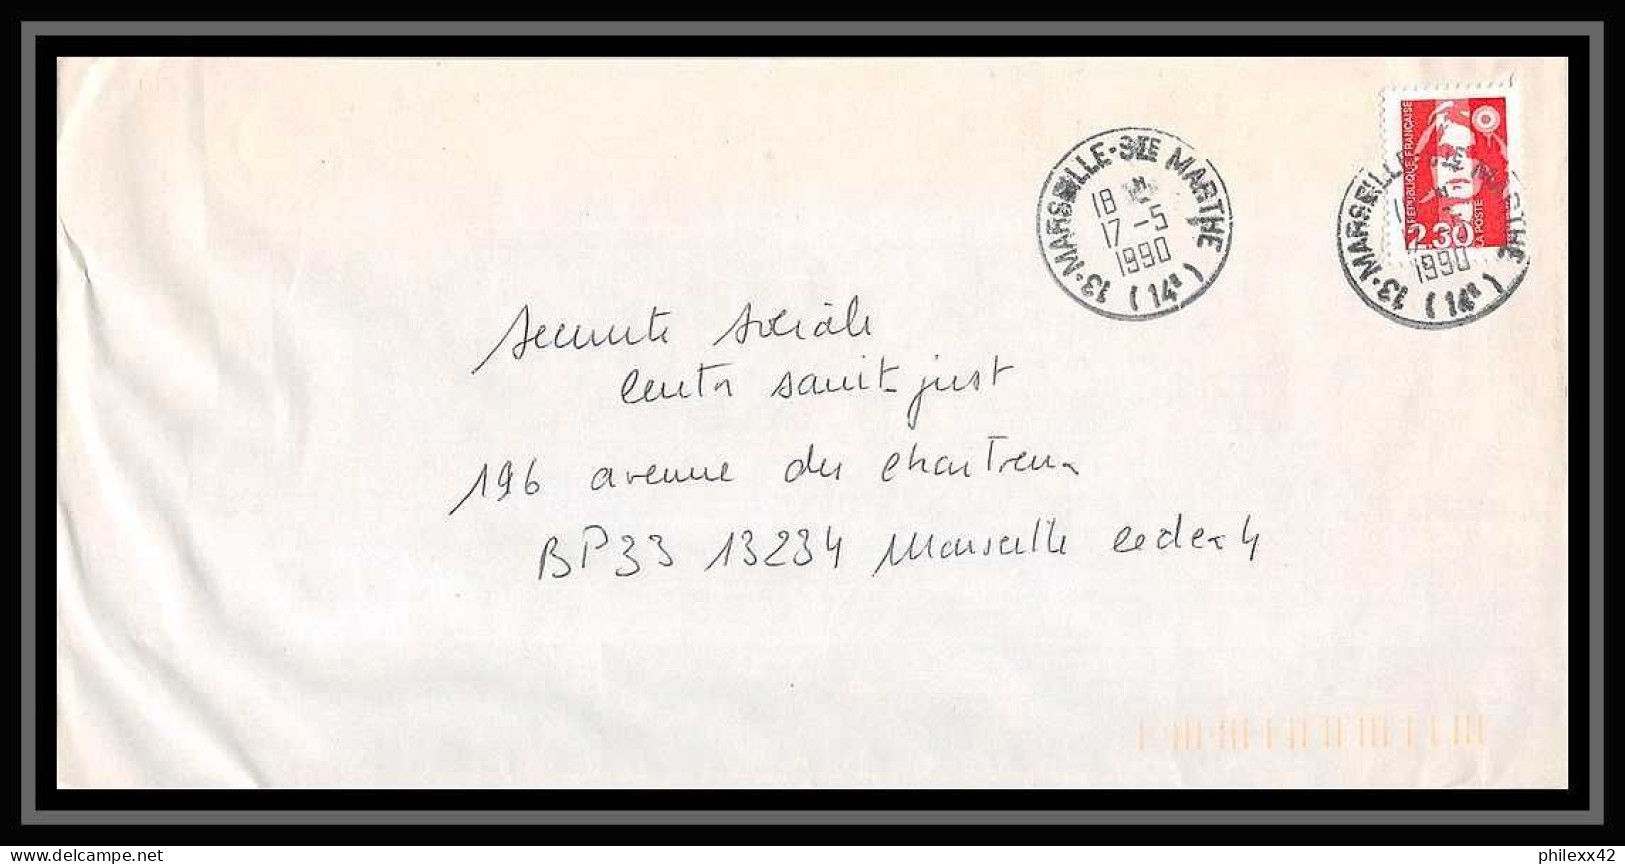 13 • MARSEILLE-STE MARTHE (14e)
18 H
17 -5
1990
RÉPUBLIQUE FRANÇAISE
2,30
LA POSTE
13 • MARSEILLE-STE MARTHE (14e)
1990
securite sociale
centre saint-just
196 avenue des chartreux
BP33 13234 Marseille cedex 4
delcampe.net
philexx42